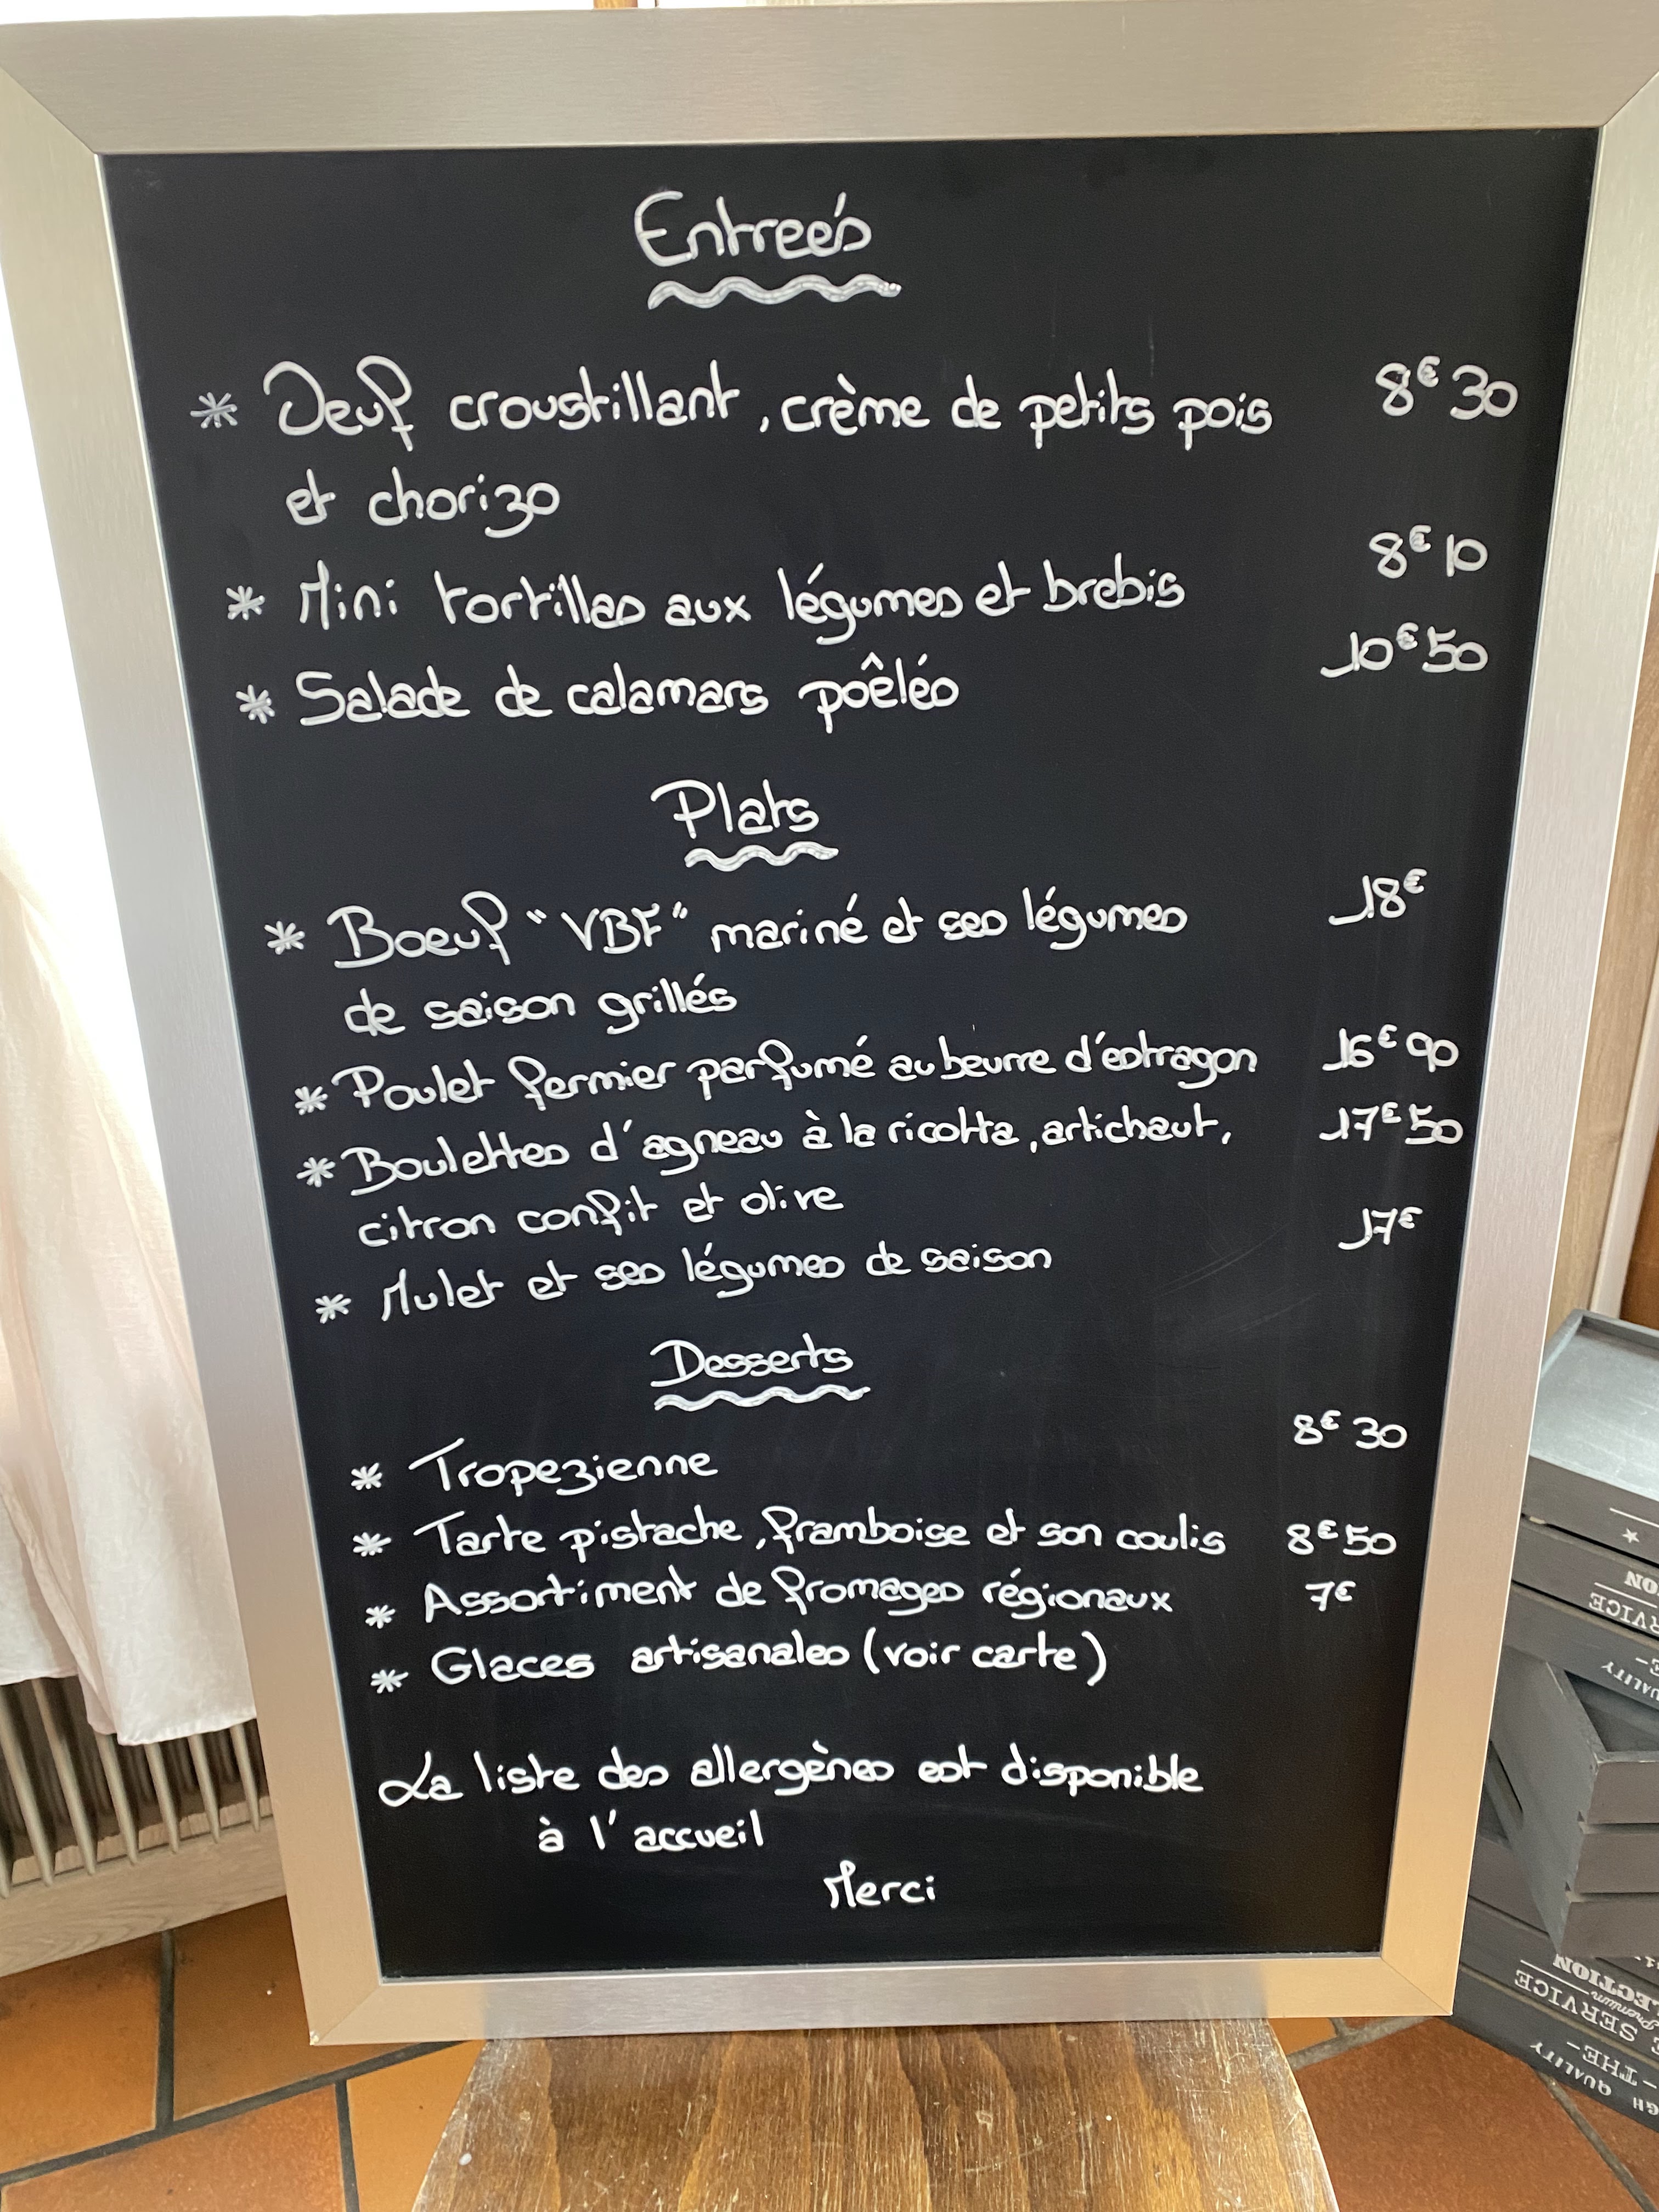 Entreés
* Oeuf croustillant, crème de petits pois 8€30
et chorizo
* Mini tortillas aux légumes et brebis 8€10
* Salade de calamars poêlés 10€50
Plats
* Boeuf "VBF" mariné et ses légumes 18€
de saison grillés
* Poulet fermier parfumé au beurre d'estragon 16€90
* Boulettes d'agneau à la ricotta, artichaut, 17€50
citron confit et olive
* Mulet et ses légumes de saison 17€
Desserts
* Tropezienne 8€30
* Tarte pistache, framboise et son coulis 8€50
* Assortiment de fromages régionaux 7€
* Glaces artisanales (voir carte)
La liste des allergènes est disponible
à l'accueil
Merci
QUALITY
-THE-
SERVICE
Premium